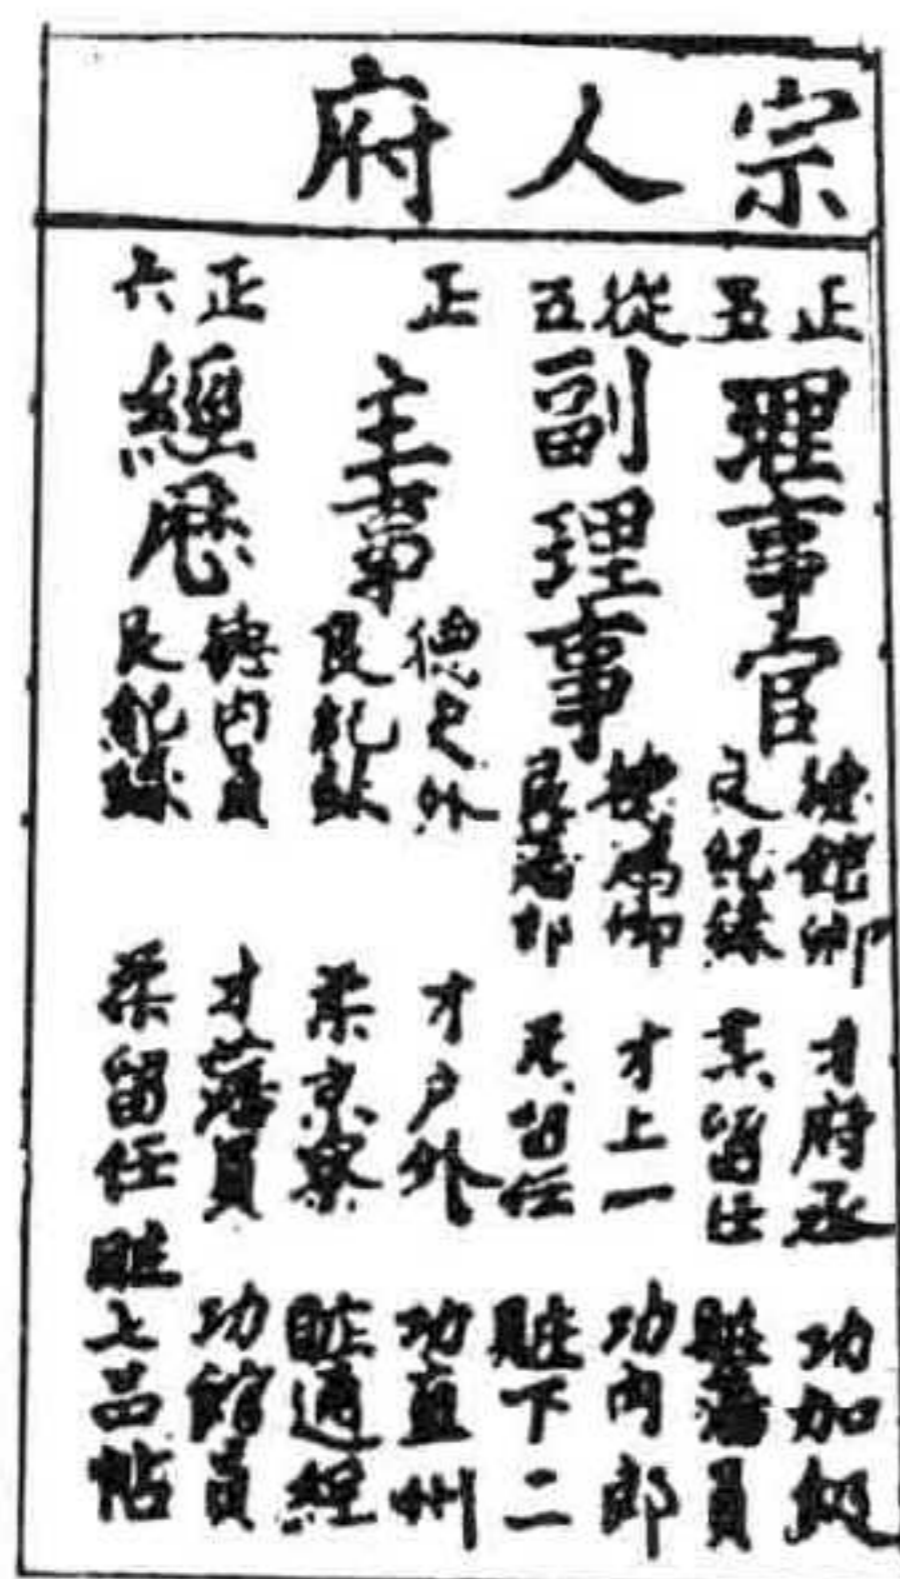 宗人府
正五
理事官
德館卿
良紀錄
才府丞
柔留任
功加級
賍藩員
從五
副理事
德鴻卿
良郎
才上一
柔留任
功內郎
賍下二
正
主事
德户外
良紀錄
才户外
柔京察
功直州
賍通經
正六
經歷
德内員
良紀錄
才藩員
柔留任
功館員
賍上品帖